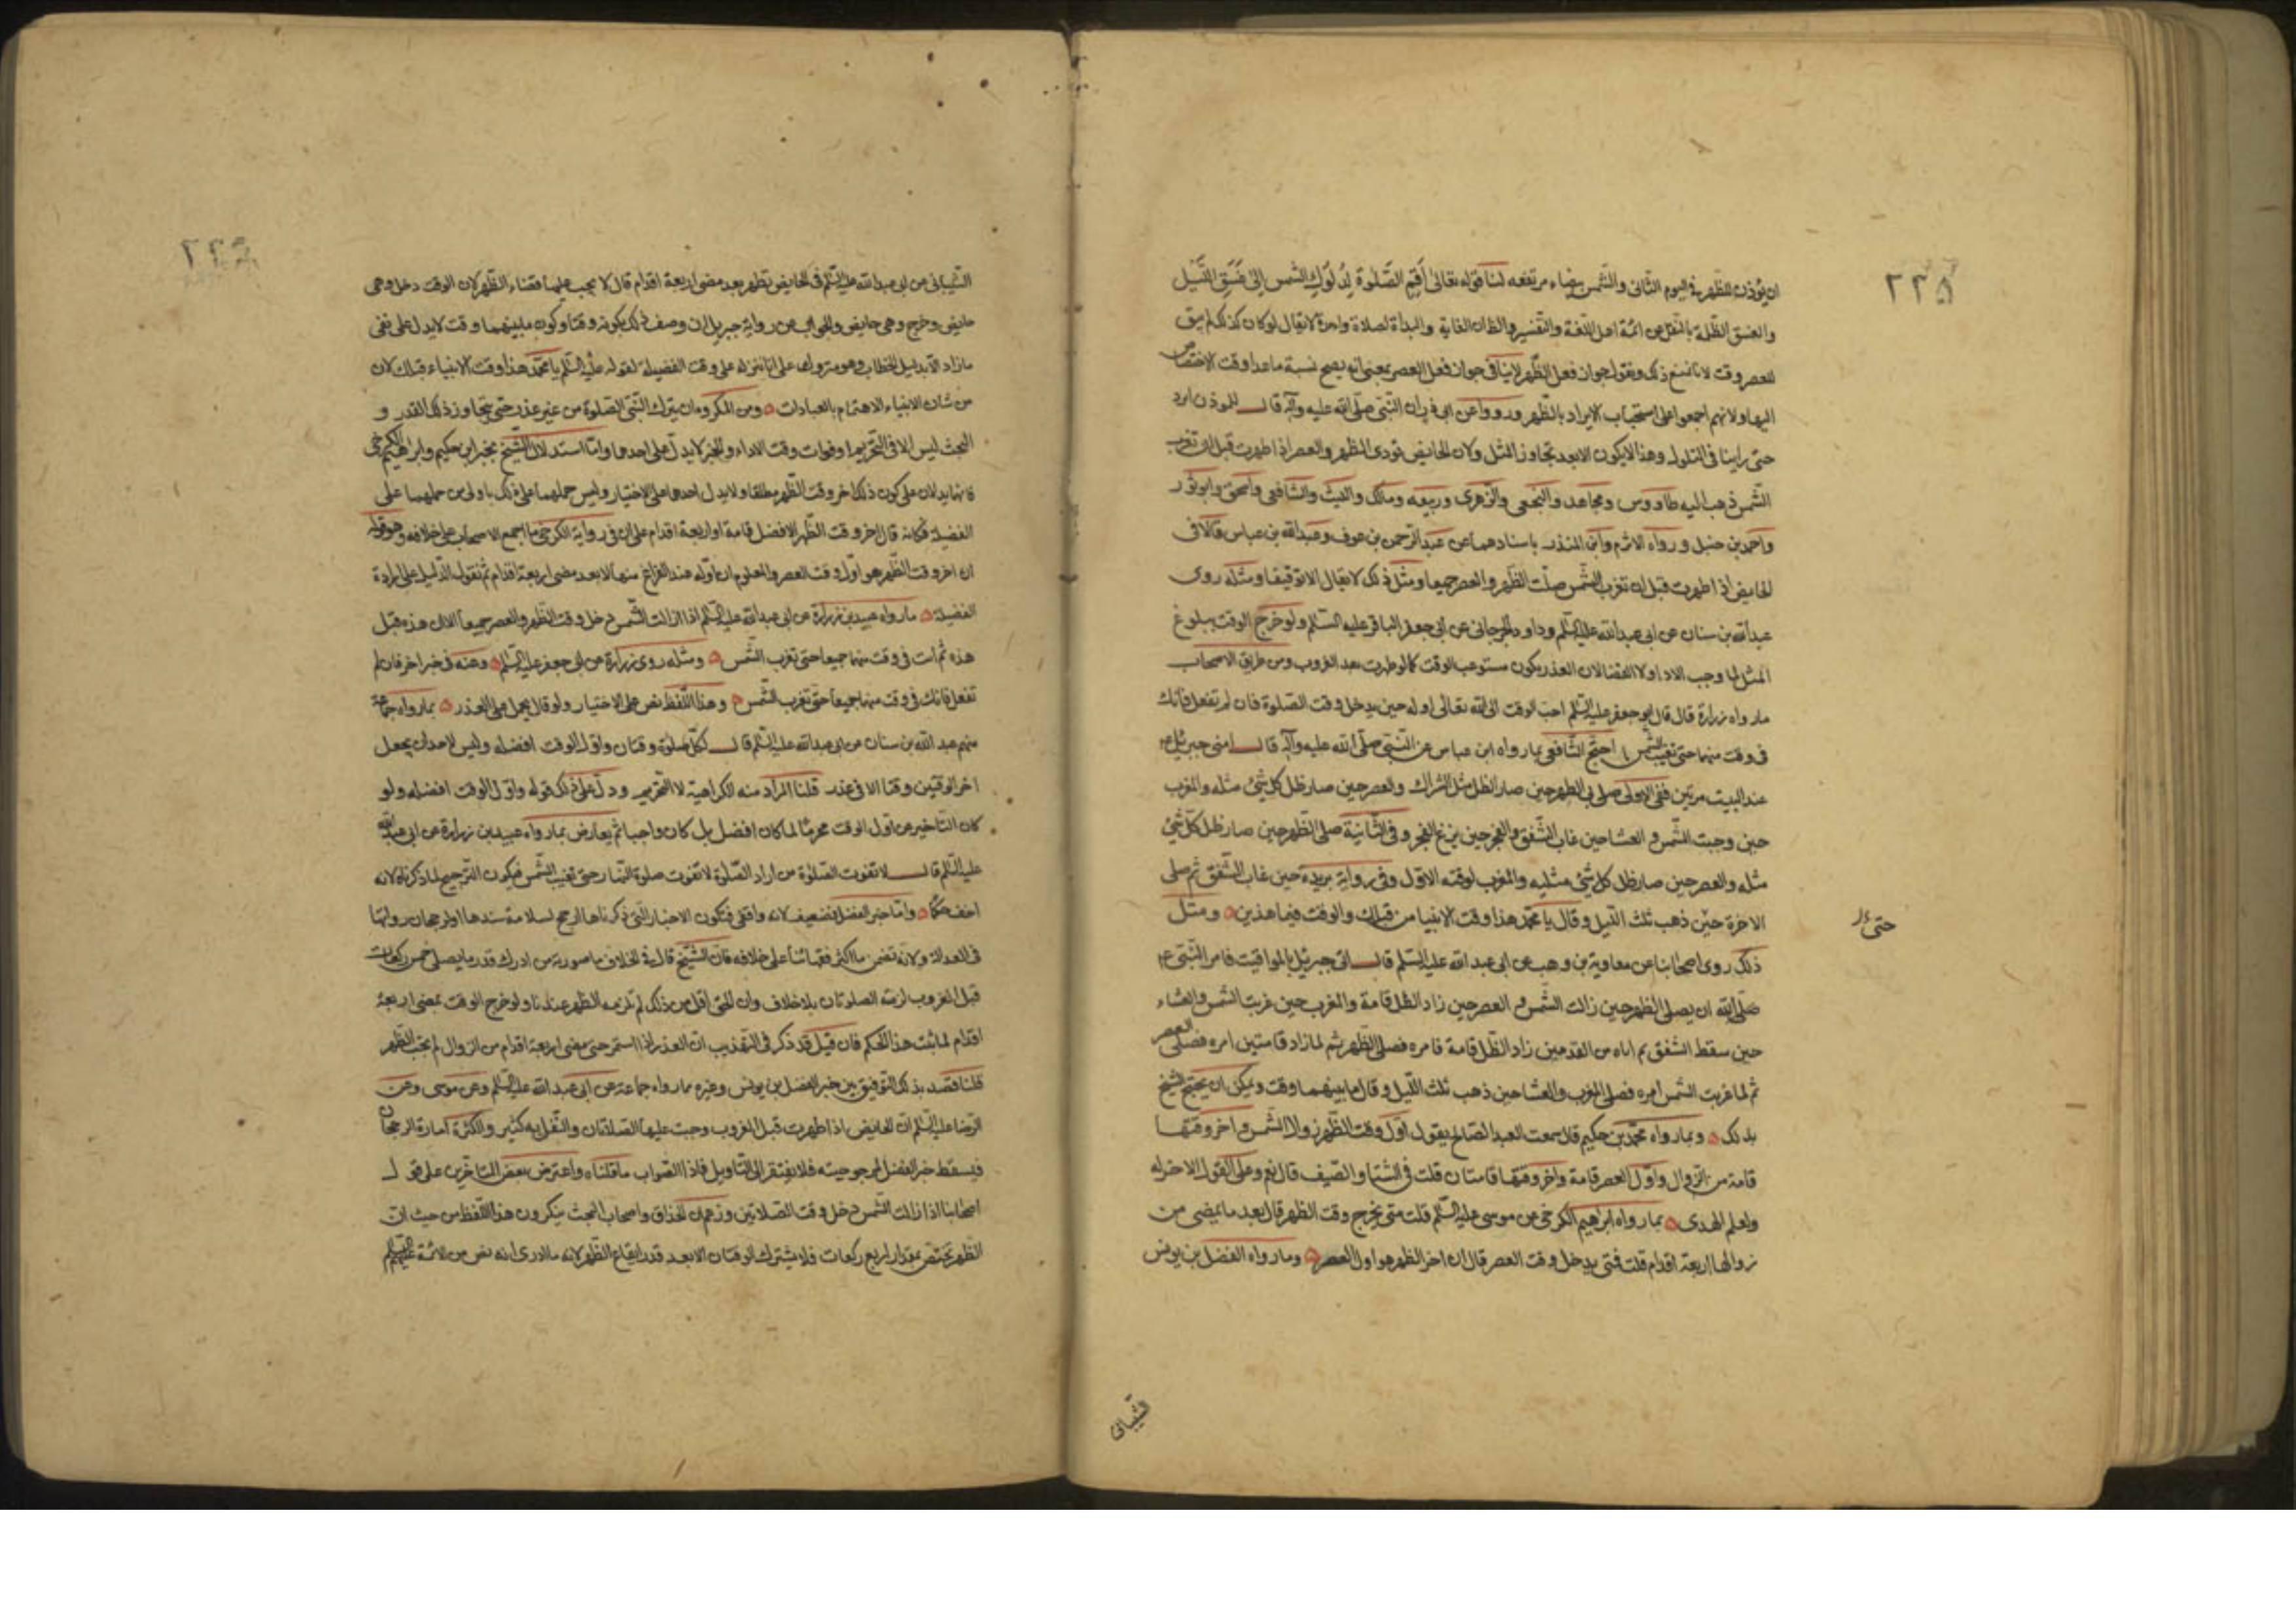 ٢٣٥
ان يؤذن للظهر في اليوم الثاني والشمس بيضاء مرتفعه لنا قوله تعالى أَقِمِ الصَّلٰوةَ لِدُلُوكِ الشَّمسِ اِلىٰ غَسَقِ اللَّيْلِ
والغسق الظلمة بالنقل عن ائمة اهل اللغة والتفسير والظان الغاية والبداة لصلاة واحدة لا يقال لو كان كذلك لم يبق
للعصر وقت لانا نمنع ذلك ونقول جواز فعل الظهر لا ينافي جواز فعل العصر بمعنى انه يصح نسبة ما عدا وقت الاختصاص
اليها ولانهم اجمعوا على استحباب الابراد بالظهر ورووا عن ابي ذر ان النبي صلى الله عليه وآله قال للموذن ابرد
حتى راينا في التلول وهذا لا يكون الا بعد تجاوز المثل ولان الحايض تودى الظهر والعصر اذا طهرت قبل ان تغرب
الشمس ذهب اليه طاووس ومجاهد والنخعي والزهرى وربيعه ومالك والليث والشافعي واسحق وابو ثور
واحمد بن حنبل ورواه الاثرم وابن المنذر باسنادهما عن عبد الرحمن بن عوف وعبد الله بن عباس قالا في
الحايض اذا طهرت قبل ان تغرب الشمس صلت الظهر والعصر جميعا ومثل ذلك لا يقال الا توقيفا ومثله روى
عبد الله بن سنان عن ابي عبد الله عليه السلم وداود الجرجاني عن ابي جعفر الباقر عليه السلم ولو خرج الوقت ببلوغ
المثل لما وجب الاداء ولا القضا لان العذر يكون مستوعب الوقت كما لو طهرت بعد الغروب ومن طريق الاصحاب
ما رواه زرارة قال قال ابو جعفر عليه السلم احب الوقت الى الله تعالى اوله حين يدخل وقت الصلوة فان لم تفعل فانك
في وقت منهما حتى تغيب الشمس احتج الشافعي بما رواه ابن عباس عن النبي صلى الله عليه وآله قال امني جبرئيل ع
عند البيت مرتين ففي الاولى صلى بي الظهر حين صار الظل مثل الشراك والعصر حين صار ظل كل شئ مثله والمغرب
حين وجبت الشمس والعشا حين غاب الشفق والفجر حين بزغ الفجر وفي الثانية صلى الظهر حين صار ظل كل شئ
مثله والعصر حين صار ظل كل شئ مثليه والمغرب لوقته الاول وفي رواية بريده حين غاب الشفق ثم صلى
الاخرة حين ذهب ثلث الليل وقال يا محمد هذا وقت الانبيا من قبلك والوقت فيما هذين ومثل
حتى
ذلك روى اصحابنا عن معاوية بن وهب عن ابي عبد الله عليه السلم قال اتى جبرئيل بالمواقيت فامر النبي ع
صلى الله ان يصلى الظهر حين زالت الشمس والعصر حين زاد الظل قامة والمغرب حين غربت الشمس والعشاء
حين سقط الشفق ثم اتاه من الغد حين زاد الظل قامة فامره فصلى الظهر ثم لما زاد قامتين امره فصلى العصر
ثم لما غربت الشمس امره فصلى المغرب والعشا حين ذهب ثلث الليل وقال ما بينهما وقت ويمكن ان يحتج الشيخ
بذلك وبما رواه محمد بن حكيم قال سمعت العبد الصالح يقول اول وقت الظهر زوال الشمس واخر وقتها
قامة من الزوال واول العصر قامة واخر وقتها قامتان قلت في الشتا والصيف قال نعم وعلى القول الاخر له
ولعلم الهدى بما رواه ابراهيم الكرخي عن موسى عليه السلم قلت متى يخرج وقت الظهر قال بعد ما يمضى من
زوالها اربعة اقدام قلت فمتى يدخل وقت العصر قال ان اخر الظهر هو اول العصر وما رواه الفضل بن يونس
الشيباني
الشيباني عن ابي عبد الله عليه السلم في الحايض تطهر بعد مضى اربعة اقدام قال لا يجب عليها قضاء الظهر لان الوقت دخل وهي
حايض وخرج وهي حايض والجواب عن رواية جبريل ان وصف ذلك بكونه وقتا وكون ما بينهما وقت لا يدل على نفى
ما زاد الا بدليل الخطاب وهو متروك على انا ننزله على وقت الفضيلة لقوله عليه السلم يا محمد هذا وقت الانبياء قبلك لان
من شان الانبياء الاهتمام بالعبادات ومن المكروه ان يترك النبي الصلوة من غير عذر حتى يتجاوز ذلك القدر و
البحث ليس الا في التحريم او فوات وقت الاداء والخبر لا يدل على احدهما واما استدلال الشيخ بخبر ابن حكيم وابراهيم الكرخي
فانهما يدلان على كون ذلك اخر وقت الظهر مطلقا ولا يدل احدهما على الاختيار وليس حملهما على ذلك باولى من حملهما على
الفضيلة فكانه قال اخر وقت الظهر الافضل قامة او اربعة اقدام على ان في رواية الكرخي ما اجمع الاصحاب على خلافه وهو قوله
ان اخر وقت الظهر هو اول وقت العصر والمعلوم ان اوله عند الفراغ منها لا بعد مضى اربعة اقدام ثم نقول الدليل على ارادة
الفضيلة ما رواه عبيد بن زرارة عن ابي عبد الله عليه السلم اذا زالت الشمس دخل وقت الظهر والعصر جميعا الا ان هذه قبل
هذه ثم انت في وقت منهما جميعا حتى تغرب الشمس ومثله روى زرارة عن ابي جعفر عليه السلم وعنه في خبر اخر فان لم
تفعل فانك في وقت منهما جميعا حتى تغرب الشمس وهذا اللفظ نص على الاختيار ولو قال يحمل على العذر بما رواه جماعة
منهم عبد الله بن سنان عن ابي عبد الله عليه السلم قال لكل صلوة وقتان واول الوقت افضله وليس لاحد ان يجعل
اخر الوقتين وقتا الا في عذر قلنا المراد منه الكراهية لا التحريم ودل على ذلك قوله واول الوقت افضله ولو
كان التاخير عن اول الوقت محرما لما كان افضل بل كان واجبا ثم يعارض بما رواه عبيد بن زرارة عن ابي عبد الله
عليه السلم قال لا تفوت الصلوة من اراد الصلوة لا تفوت صلوة النهار حتى تغيب الشمس فيكون الترجيح لما ذكرناه لانه
اخف حكما واما خبر الفضل فضعيف لانه واقفى فتكون الاخبار التي ذكرناها ارجح لسلامة سندها او لرجحان رواتها
في العدالة ولانه تضمن ما اكثر فقهائنا على خلافه فان الشيخ قال في الخلاف ما صورته من ادرك قدر ما يصلى خمس ركعات
قبل الغروب لزمته الصلوتان بلا خلاف وان لحق اقل من ذلك لم تلزمه الظهر عندنا ولو خرج الوقت بمضى اربعة
اقدام لما ثبت هذا الحكم فان قيل قد ذكر في التهذيب ان العذر اذا استمر حتى مضى اربعة اقدام من الزوال لم تجب الظهر
قلنا قصد بذلك التوفيق بين خبر الفضل بن يونس وغيره بما رواه جماعة عن ابي عبد الله عليه السلم وعن موسى وعن
الرضا عليه السلم ان الحايض اذا طهرت قبل الغروب وجبت عليها الصلاتان والنقل به كثير والكثرة امارة الرجحان
فيسقط خبر الفضل لمرجوحيته فلا يفتقر الى التاويل فاذا الصواب ما قلناه واعترض بعض المتاخرين على قول
اصحابنا اذا زالت الشمس دخل وقت الصلاتين وزعم ان الحذاق واصحاب البحث ينكرون هذا اللفظ من حيث ان
الظهر تختص بمقدار اربع ركعات فلا يشترك الوقتان الا بعد قدر ايقاع الظهر لانه ما لا درى انه نص من الائمة عليهم السلم